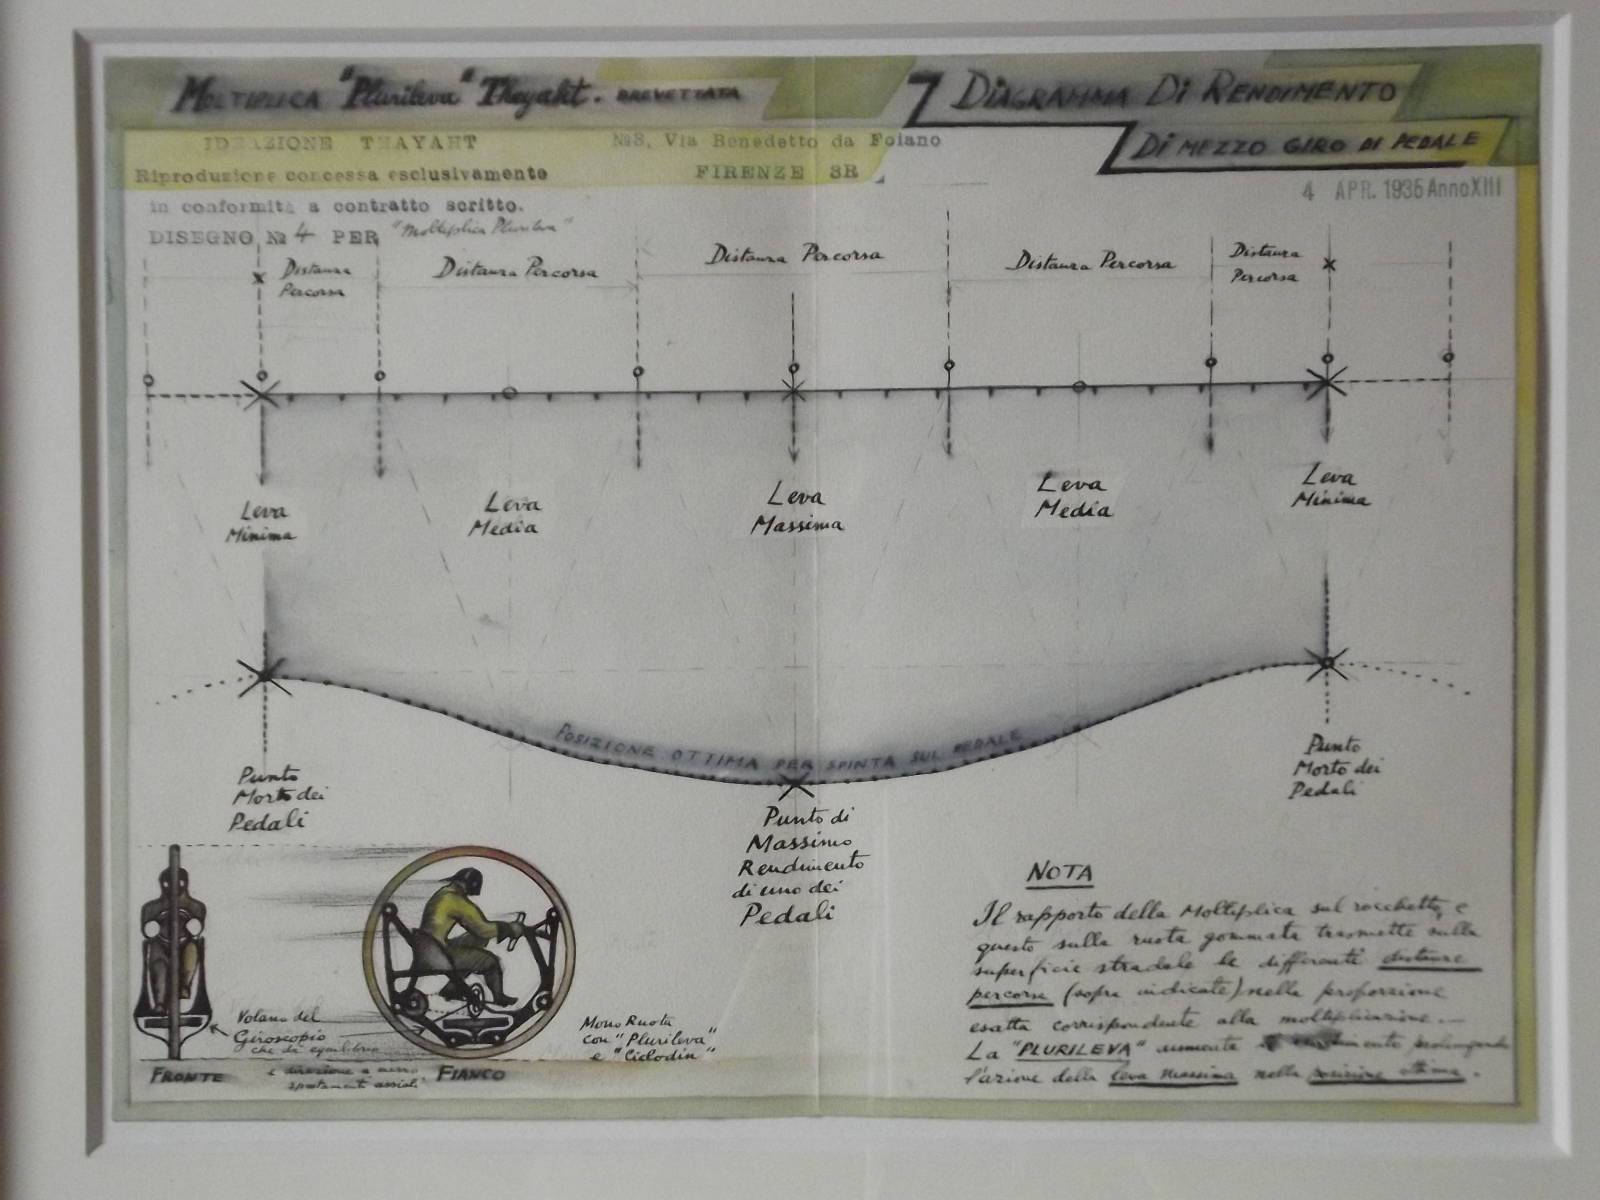 MOLTIPLICA "Plurileva" Thayaht. BREVETTATA
DIAGRAMMA DI RENDIMENTO
DI MEZZO GIRO DI PEDALE
IDEAZIONE THAYAHT
Nº3, Via Benedetto da Foiano
Riproduzione concessa esclusivamente
FIRENZE 3R
in conformità a contratto scritto.
4 APR. 1935 Anno XIII
DISEGNO Nº 4 PER "Moltiplica Plurileva"
Distanza
Percorsa
Distanza Percorsa
Distanza Percorsa
Distanza Percorsa
Distanza
Percorsa
Leva
Minima
Leva
Media
Leva
Massima
Leva
Media
Leva
Minima
POSIZIONE OTTIMA PER SPINTA SUL PEDALE
Punto
Morto dei
Pedali
Punto di
Massimo
Rendimento
di uno dei
Pedali
Punto
Morto dei
Pedali
Volano del
Giroscopio
che dà equilibrio
e direzione a mezzo
spostamenti assiali
FRONTE
FIANCO
Mono Ruota
con "Plurileva"
e "Ciclodin"
NOTA
Il rapporto della Moltiplica sul rocchetto, e
questo sulla ruota gommata trasmette sulla
superficie stradale le differenti distanze
percorse (sopra indicate) nella proporzione
esatta corrispondente alla moltiplicazione.—
La "PLURILEVA" aumenta il prolungando
l'azione della leva massima nella posizione ottima.